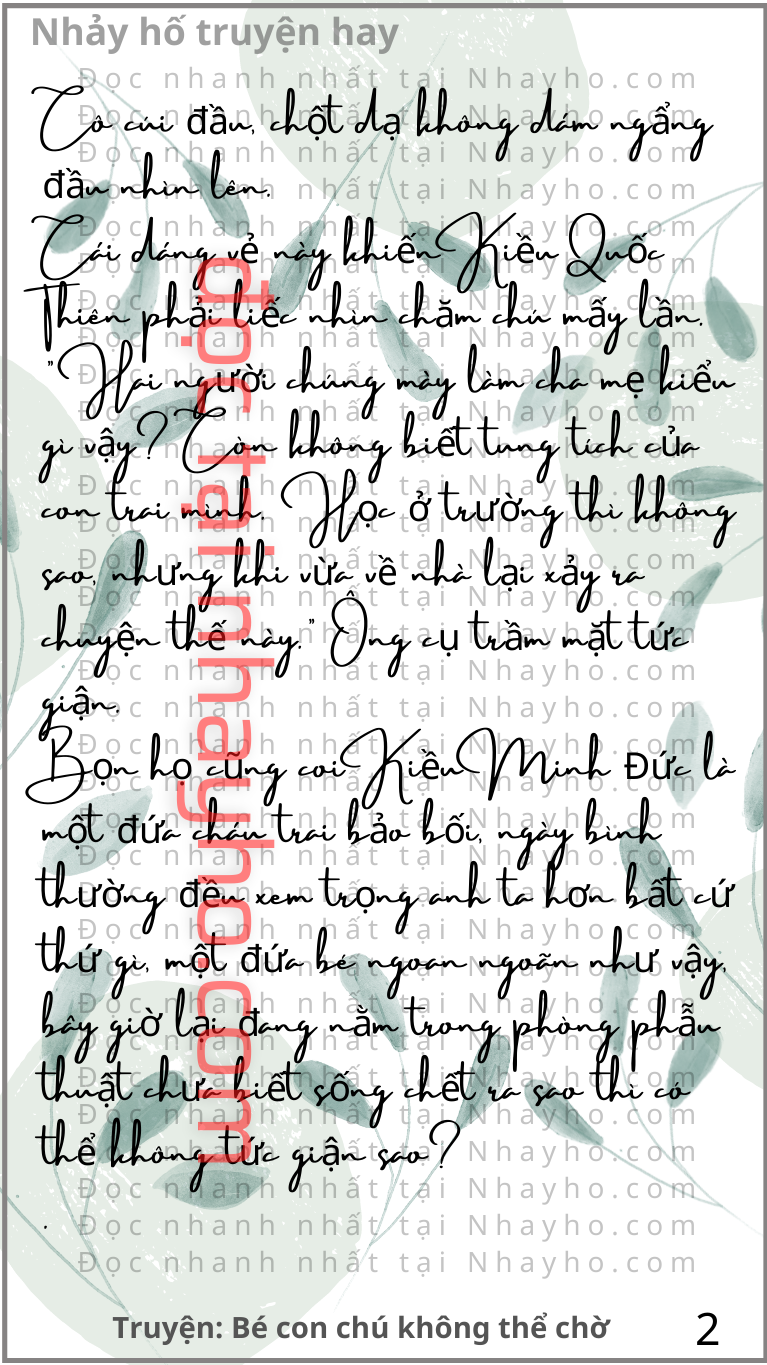 Nhảy hố truyện hay
Đọc nhanh nhất tại Nhayho.com
Cô cúi đầu, chột dạ không dám ngẩng
đầu nhìn lên.
Cái dáng vẻ này khiến Kiều Quốc
Thiên phải liếc nhìn chăm chú mấy lần.
"Hai người chúng mày làm cha mẹ kiểu
gì vậy? Còn không biết tung tích của
con trai mình. Học ở trường thì không
sao, nhưng khi vừa về nhà lại xảy ra
chuyện thế này." Ông cụ trầm mặt tức
giận.
Bọn họ cũng coi Kiều Minh Đức là
một đứa cháu trai bảo bối, ngày bình
thường đều xem trọng anh ta hơn bất cứ
thứ gì, một đứa bé ngoan ngoãn như vậy,
bây giờ lại đang nằm trong phòng phẫu
thuật chưa biết sống chết ra sao thì có
thể không tức giận sao?
.
đọc tại nhayho.com
Đọc nhanh nhất tại Nhayho.com
Đọc nhanh nhất tại Nhayho.com
Truyện: Bé con chú không thể chờ
2